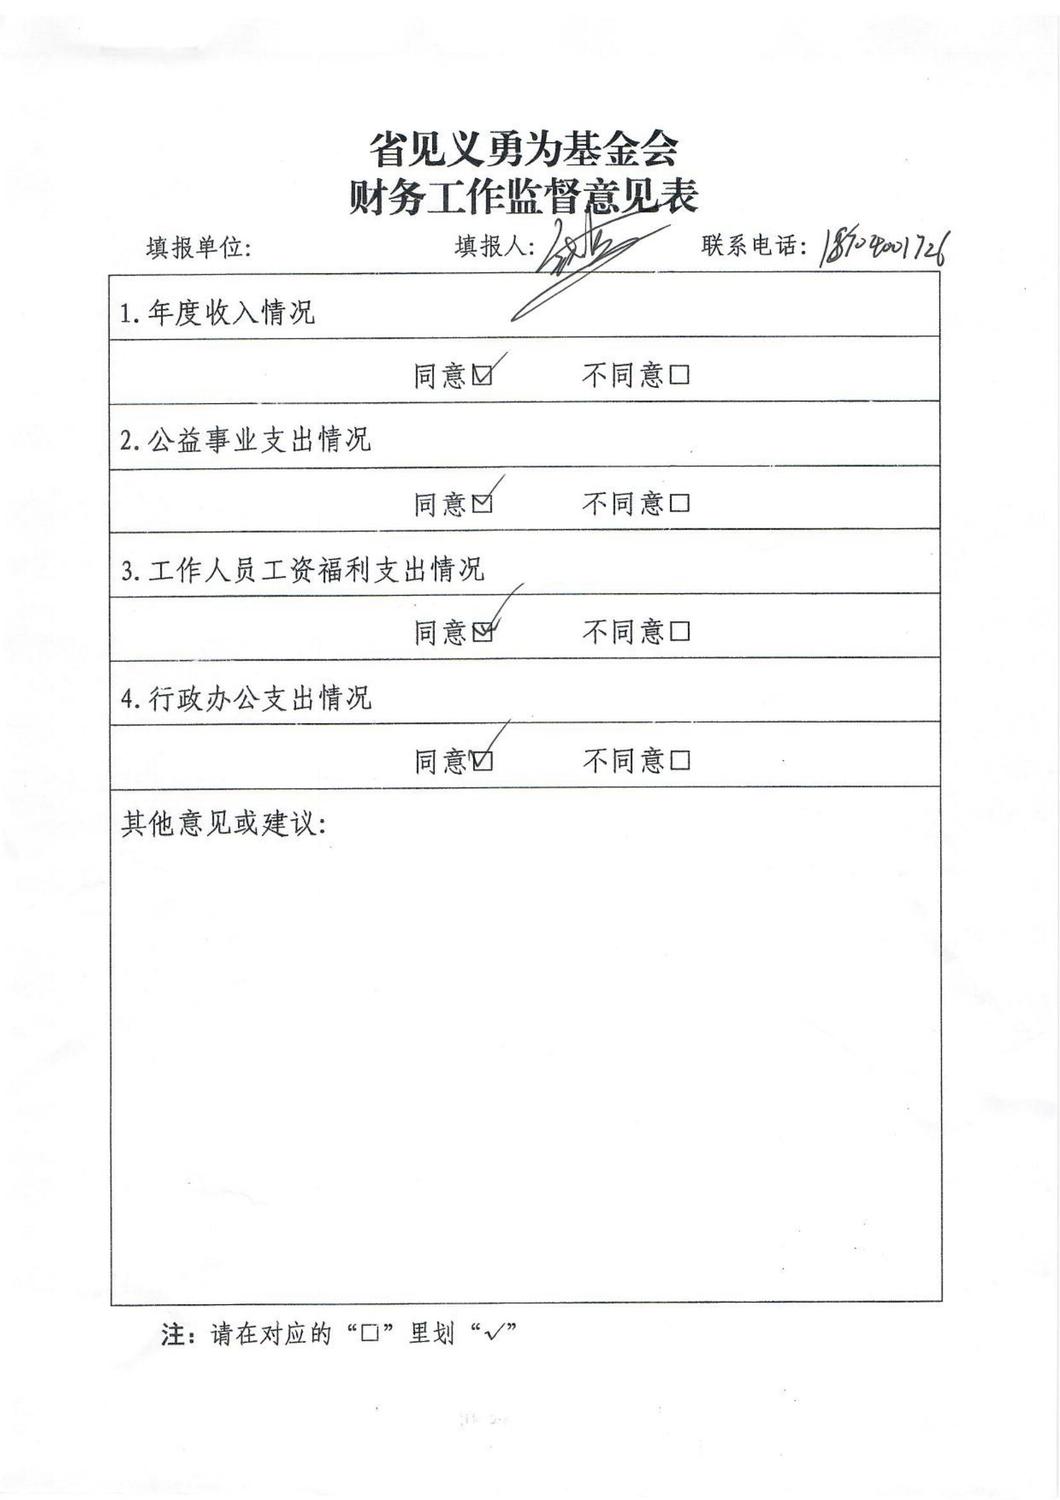 省见义勇为基金会
财务工作监督意见表
填报单位: 填报人: 联系电话: 18704001726
1.年度收入情况
同意☑ 不同意□
2.公益事业支出情况
同意☑ 不同意□
3.工作人员工资福利支出情况
同意☑ 不同意□
4.行政办公支出情况
同意☑ 不同意□
其他意见或建议:
注: 请在对应的“□”里划“✓”